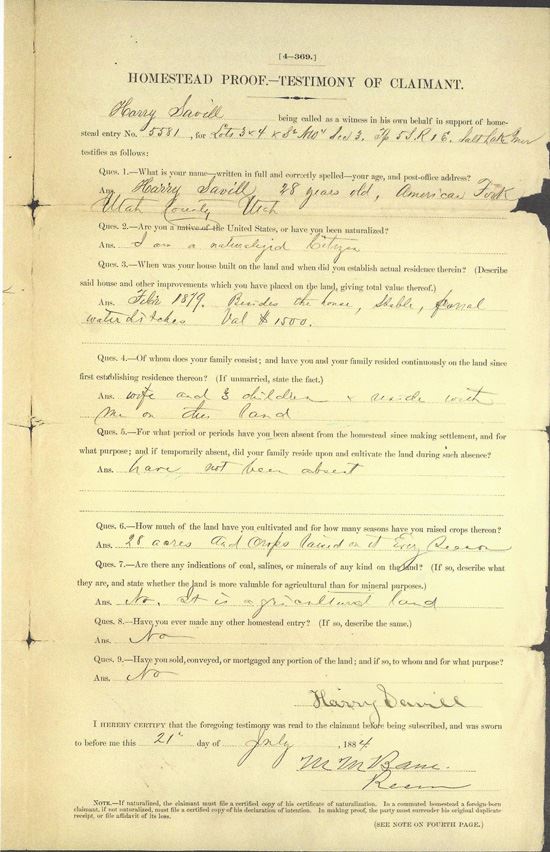 [4—369.]
HOMESTEAD PROOF.—TESTIMONY OF CLAIMANT.
Harry Savill being called as a witness in his own behalf in support of home-
stead entry No. 5581, for Lots 3 & 4 & S² NW⁴ Sec 3. Tp 5 S. R 1 E. Salt Lake Mer
testifies as follows:
Ques. 1.—What is your name—written in full and correctly spelled—your age, and post-office address?
Ans. Harry Savill, 28 years old, American Fork
Utah County Utah
Ques. 2.—Are you a native of the United States, or have you been naturalized?
Ans. I am a naturalized Citizen
Ques. 3.—When was your house built on the land and when did you establish actual residence therein? (Describe
said house and other improvements which you have placed on the land, giving total value thereof.)
Ans. Feb'y 1879. Besides the house, Stable, corral
water ditches Val $1500.
Ques. 4.—Of whom does your family consist; and have you and your family resided continuously on the land since
first establishing residence thereon? (If unmarried, state the fact.)
Ans. wife and 3 children & reside with
me on the land
Ques. 5.—For what period or periods have you been absent from the homestead since making settlement, and for
what purpose; and if temporarily absent, did your family reside upon and cultivate the land during such absence?
Ans. have not been absent
Ques. 6.—How much of the land have you cultivated and for how many seasons have you raised crops thereon?
Ans. 28 acres and Crops raised on it Every Season
Ques. 7.—Are there any indications of coal, salines, or minerals of any kind on the land? (If so, describe what
they are, and state whether the land is more valuable for agricultural than for mineral purposes.)
Ans. No. It is agricultural land
Ques. 8.—Have you ever made any other homestead entry? (If so, describe the same.)
Ans. No
Ques. 9.—Have you sold, conveyed, or mortgaged any portion of the land; and if so, to whom and for what purpose?
Ans. No
Harry Savill
I HEREBY CERTIFY that the foregoing testimony was read to the claimant before being subscribed, and was sworn
to before me this 21st day of July, 1884
M M Bane.
NOTE.—If naturalized, the claimant must file a certified copy of his certificate of naturalization. In a commuted homestead a foreign-born
claimant, if not naturalized, must file a certified copy of his declaration of intention. In making proof, the party must surrender his original duplicate
receipt, or file affidavit of its loss.
(SEE NOTE ON FOURTH PAGE.)